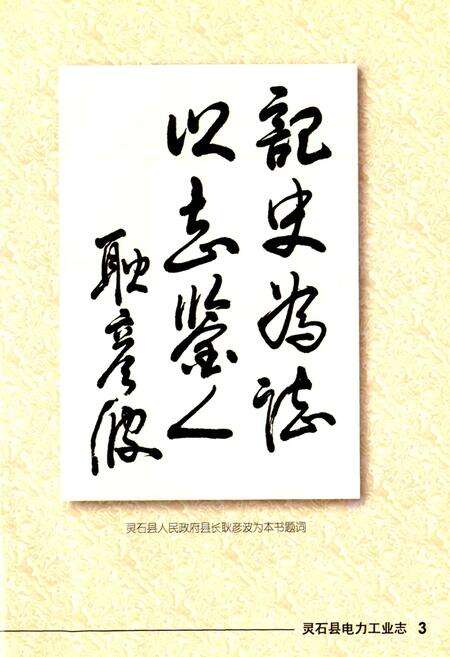 記史为誌
以志鉴人
耿彦波
灵石县人民政府县长耿彦波为本书题词
灵石县电力工业志 3